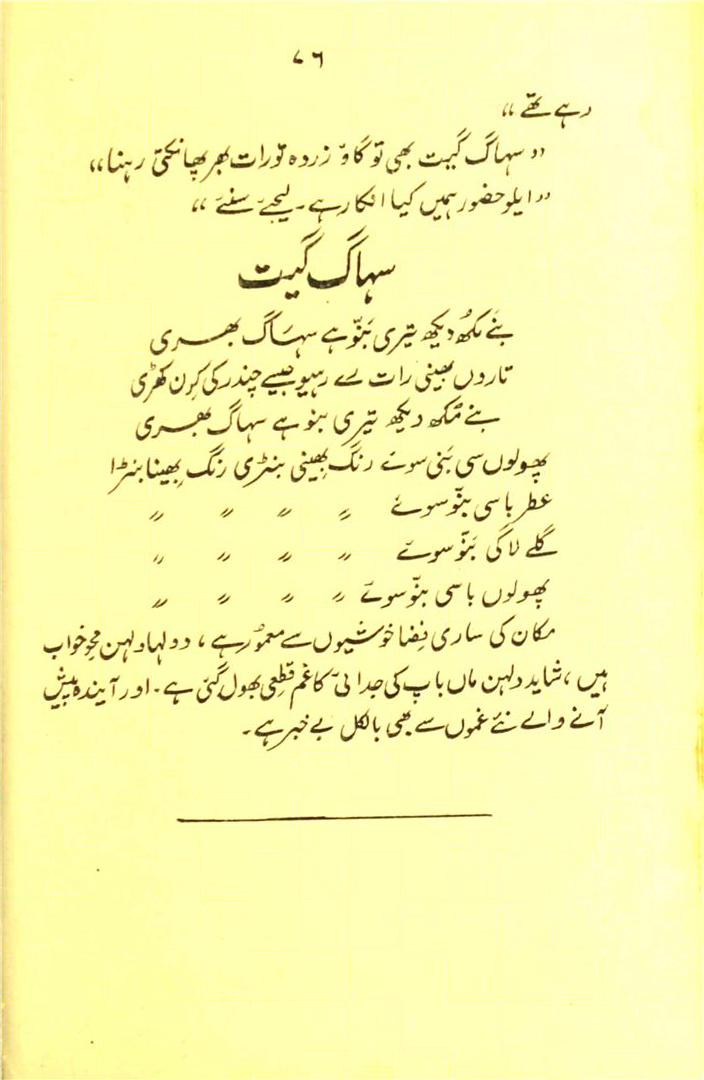 ۷۶
رہے تھے“
”سہاگ گیت بھی تو گاؤ زردہ تورات بھر پھانکتی رہنا“
”ایلو حضور ہمیں کیا انکار ہے۔ لیجئے سنئے“
سہاگ گیت
بنے مُکھ دیکھ تیری بَنّو ہے سہَاگ بھری
تاروں بھینی رات رے رہیو جیسے چندر کی کِرن کھڑی
بنے مُکھ دیکھ تیری بنو ہے سہاگ بھری
پھولوں سی بَنی سوئے رنگ بِھینی بنٹری رنگ بِھینا بنڑا
عطر باسی بنّو سوئے 〃 〃 〃 〃
گلے لاگی بَنّو سوئے 〃 〃 〃 〃
پھولوں باسی بنّو سوئے 〃 〃 〃 〃
مکان کی ساری فِضا خوشیوں سے معمُور ہے، دولہا دلہن محوِ خواب
ہیں، شاید دلہن ماں باپ کی جدائی کا غم قطعی بھول گئی ہے۔ اور آیندہ پیش
آنے والے نئے غموں سے بھی بالکل بے خبر ہے۔